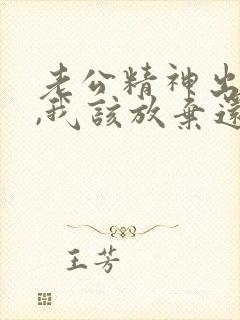 老公精神出
,我該放棄還
王芳